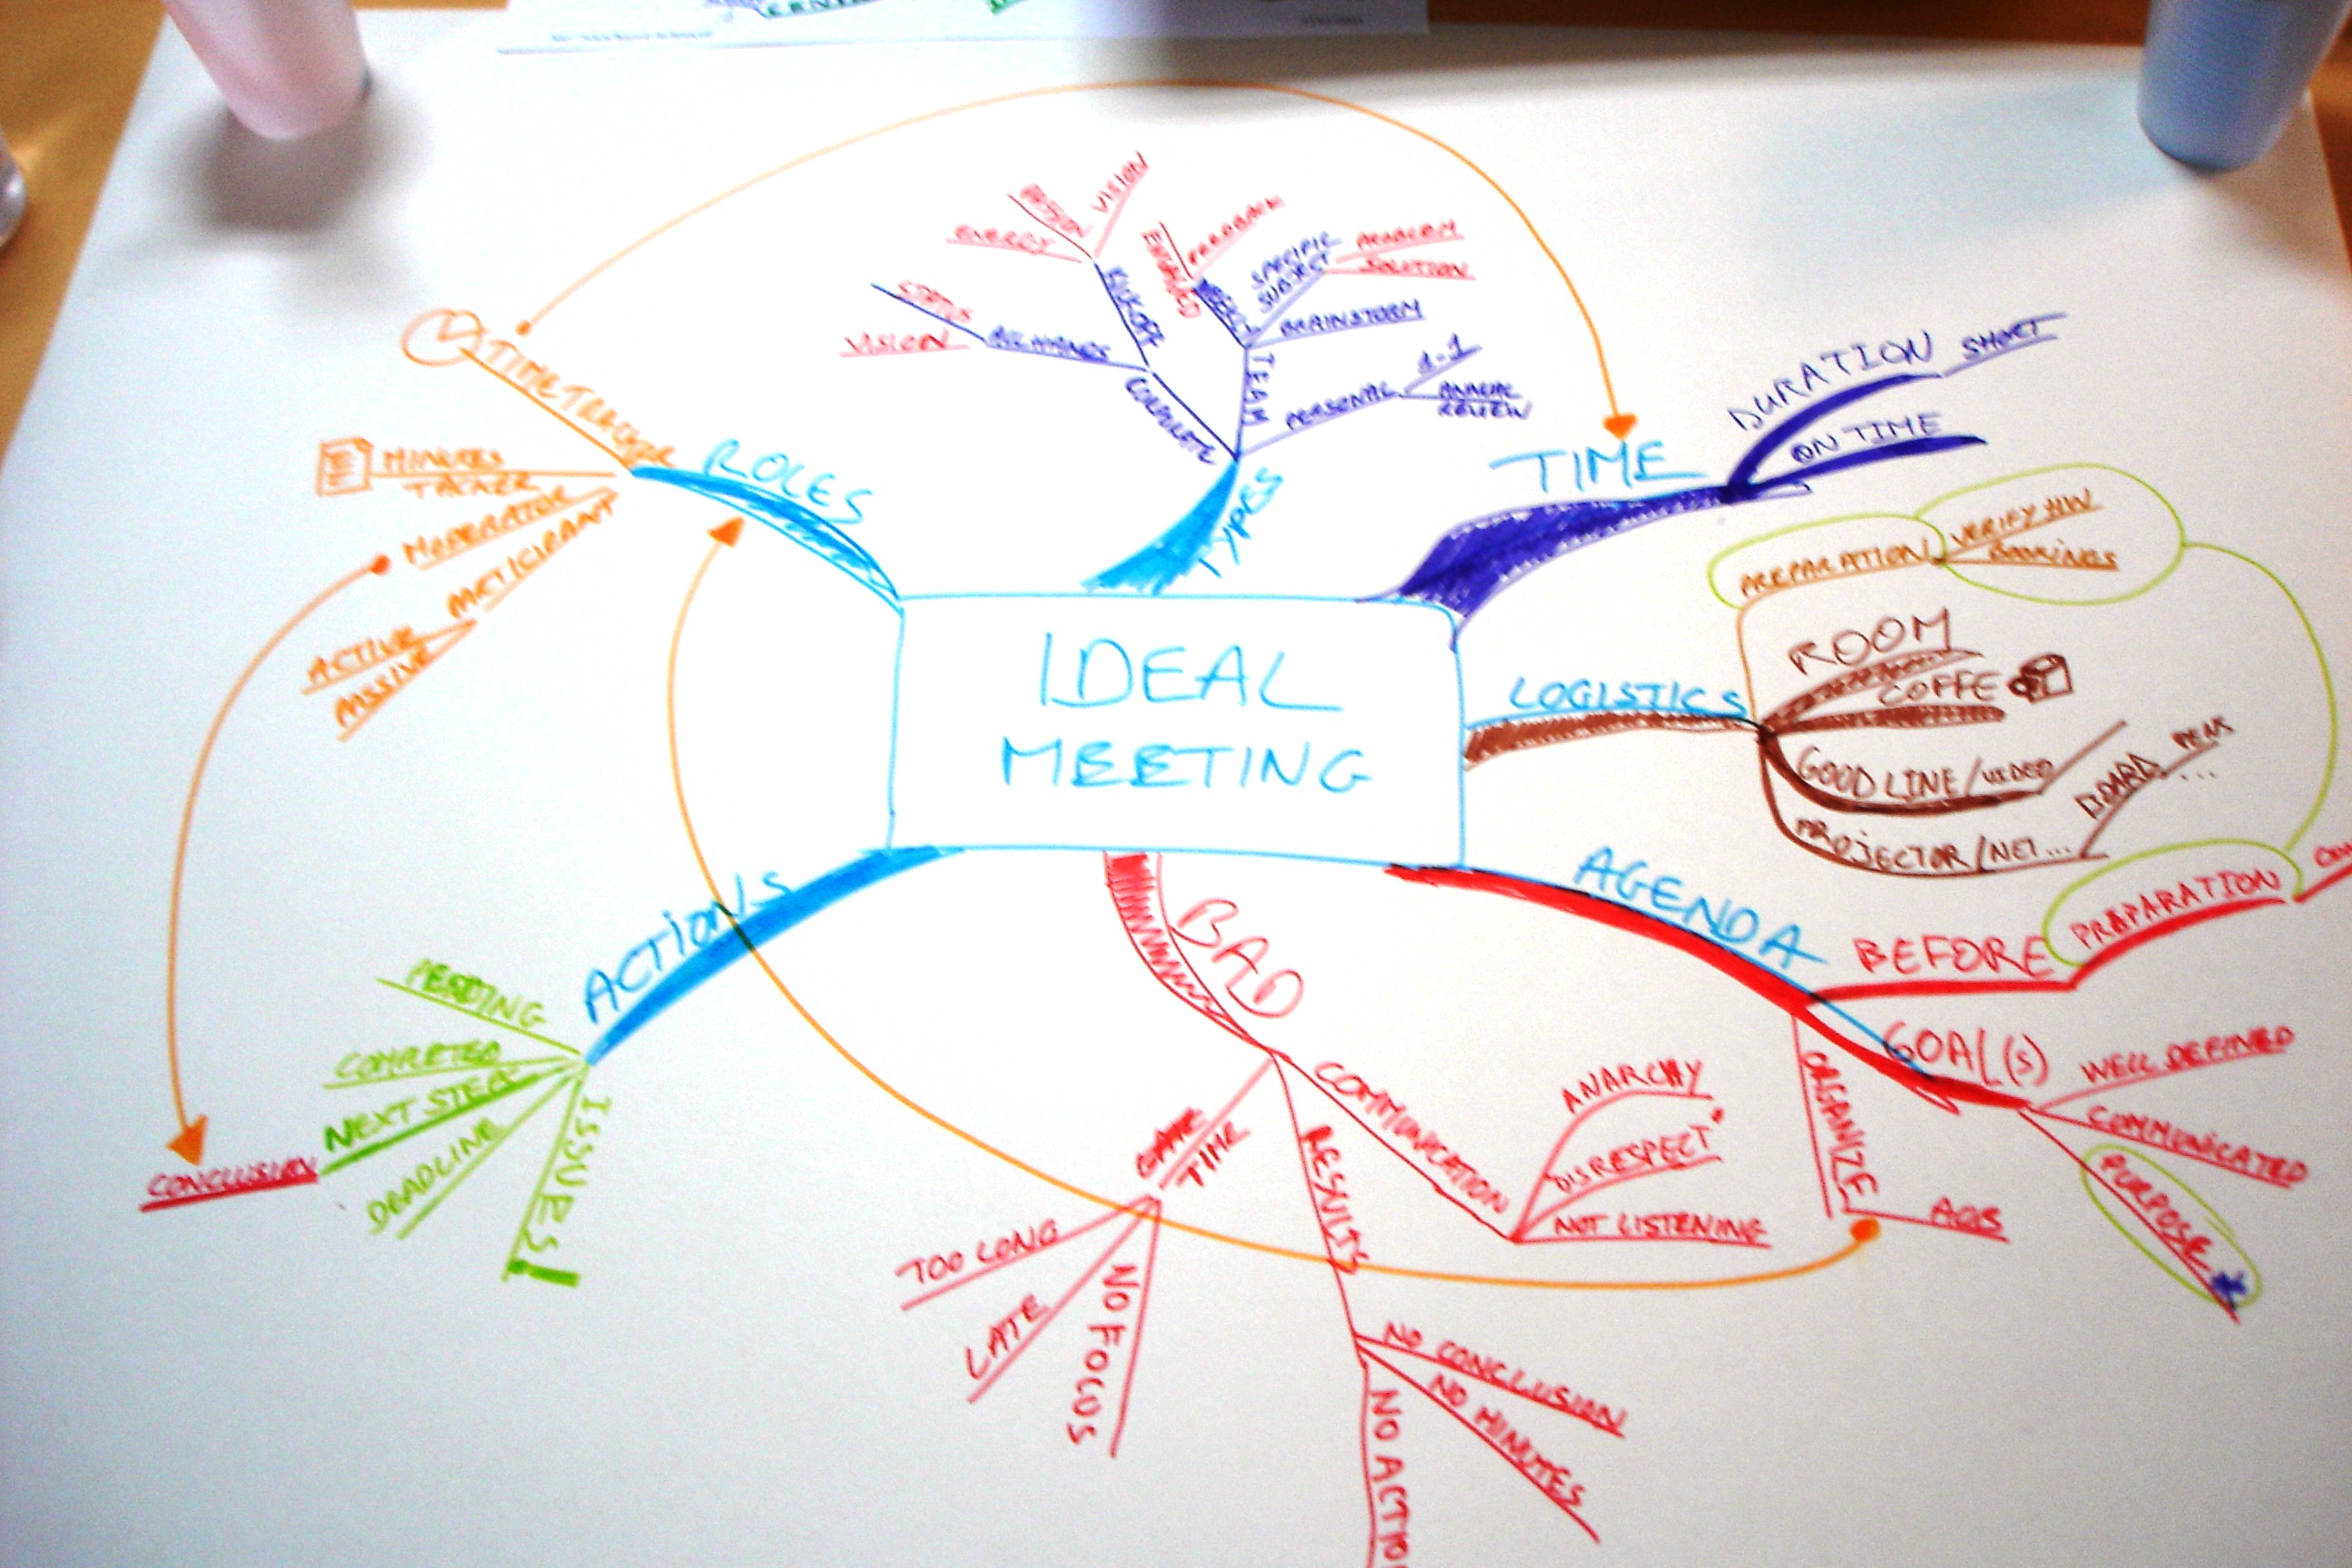 IDEAL
MEETING
ROLES
TIMETRACKER
MINUTES
TACKER
MODERATOR
PARTICIPANT
ACTIVE
PASSIVE
TYPES
CORPORATE
ALL HANDS
STATUS
VISION
KICKOFF
ENERGY
VISION
TEAM
WEEKLY
FEEDBACK
SPECIFIC
SUBJECT
PROBLEM
SOLUTION
BRAINSTORM
PERSONAL
1-1
ANNUAL
REVIEW
TIME
DURATION
SHORT
ON TIME
LOGISTICS
PREPARATION
VERIFY HW
BOOKINGS
ROOM
COFFE
GOOD LINE/VIDEO
PROJECTOR/NET...
BOARD, PENS
...
AGENDA
BEFORE
PREPARATION
GOAL(S)
WELL DEFINED
COMMUNICATED
PURPOSE *
ORGANIZE
BAD
COMMUNICATION
ANARCHY
DISRESPECT
NOT LISTENING
RESULTS
NO CONCLUSION
NO MINUTES
NO ACTION
TIME
TOO LONG
LATE
NO FOCUS
ACTIONS
PENDING
COMPLETED
NEXT STEPS
CONCLUSION
DEADLINE
ISSUES!